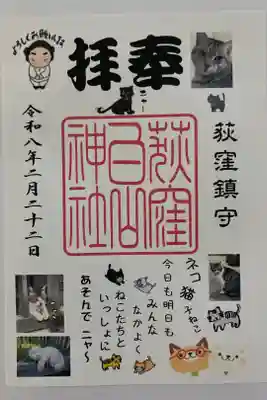 よろしくお願いします
奉拝
ニャー
荻窪鎮守
荻窪
白山
神社
令和八年二月二十二日
ネコ 猫 ねこ
今日も明日も
みんな
なかよく
ねこたちと
いっしょに
あそんで ニャ〜